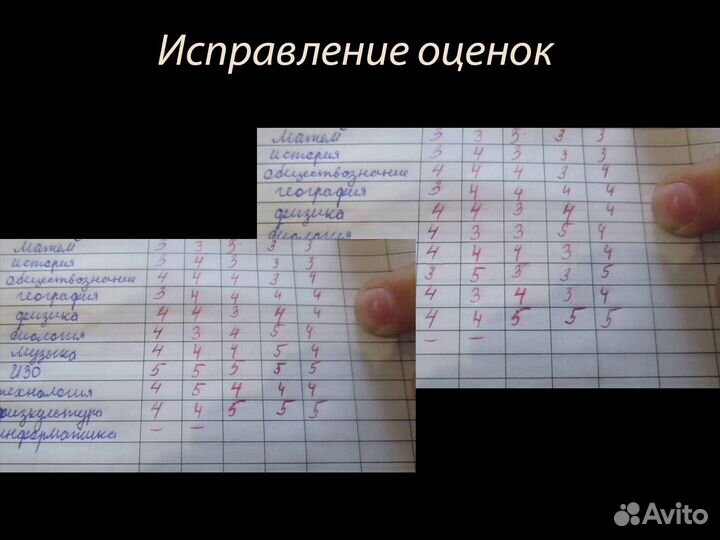 Исправление оценок
Матем 3 3 3 3 3
история 3 4 3 3 3
обществознание 4 4 4 3 4
география 3 4 4 4 4
физика 4 4 3 4 4
биология 4 3 3 5 4
4 4 4 3 4
3 5 3 3 5
4 3 4 3 4
4 4 5 5 5
– –
Матем 3 3 3 3 3
история 3 4 3 3 3
обществознание 4 4 4 3 4
география 3 4 4 4 4
физика 4 4 3 4 4
биология 4 3 4 5 4
музыка 4 4 4 5 4
ИЗО 5 5 5 5 5
технология 4 5 4 4 4
физкультура 4 4 5 5 5
информатика – –
Avito